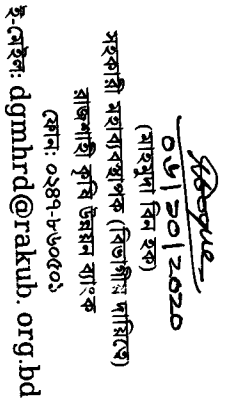 (মাহমুদা বিন হক)
সহকারী মহাব্যবস্থাপক (বিভাগীয় দায়িত্বে)
রাজশাহী কৃষি উন্নয়ন ব্যাংক
ফোন: ০২৪৭-৮৬০৫০১
ই-মেইল: dgmhrd@rakub.org.bd